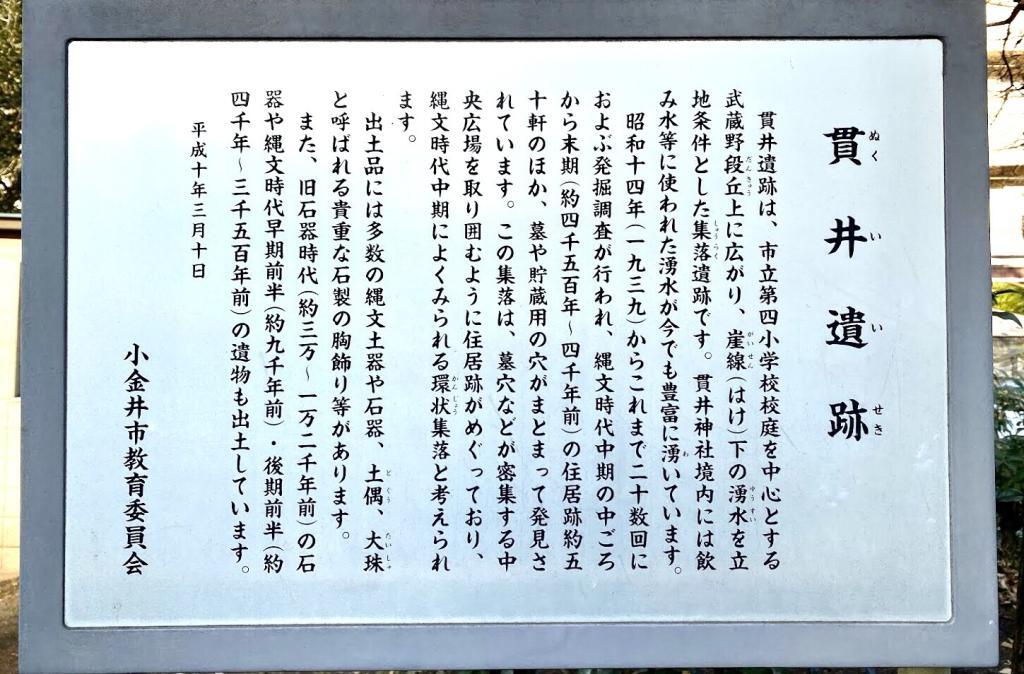 貫井遺跡
ぬくいいせき
貫井遺跡は、市立第四小学校校庭を中心とする
武蔵野段丘上に広がり、崖線(はけ)下の湧水を立
だんきゅう
がいせん
ゆうすい
地条件とした集落遺跡です。貫井神社境内には飲
しゅうらく
み水等に使われた湧水が今でも豊富に湧いています。
わ
昭和十四年(一九三九)からこれまで二十数回に
および発掘調査が行われ、縄文時代中期の中ごろ
から末期(約四千五百年~四千年前)の住居跡約五
十軒のほか、墓や貯蔵用の穴がまとまって発見さ
れています。この集落は、墓穴などが密集する中
央広場を取り囲むように住居跡がめぐっており、
縄文時代中期によくみられる環状集落と考えられ
かんじょう
ます。
出土品には多数の縄文土器や石器、土偶、大珠
どぐう
たいしゅ
と呼ばれる貴重な石製の胸飾り等があります。
また、旧石器時代(約三万~一万二千年前)の石
器や縄文時代早期前半(約九千年前)・後期前半(約
四千年~三千五百年前)の遺物も出土しています。
平成十年三月十日
小金井市教育委員会